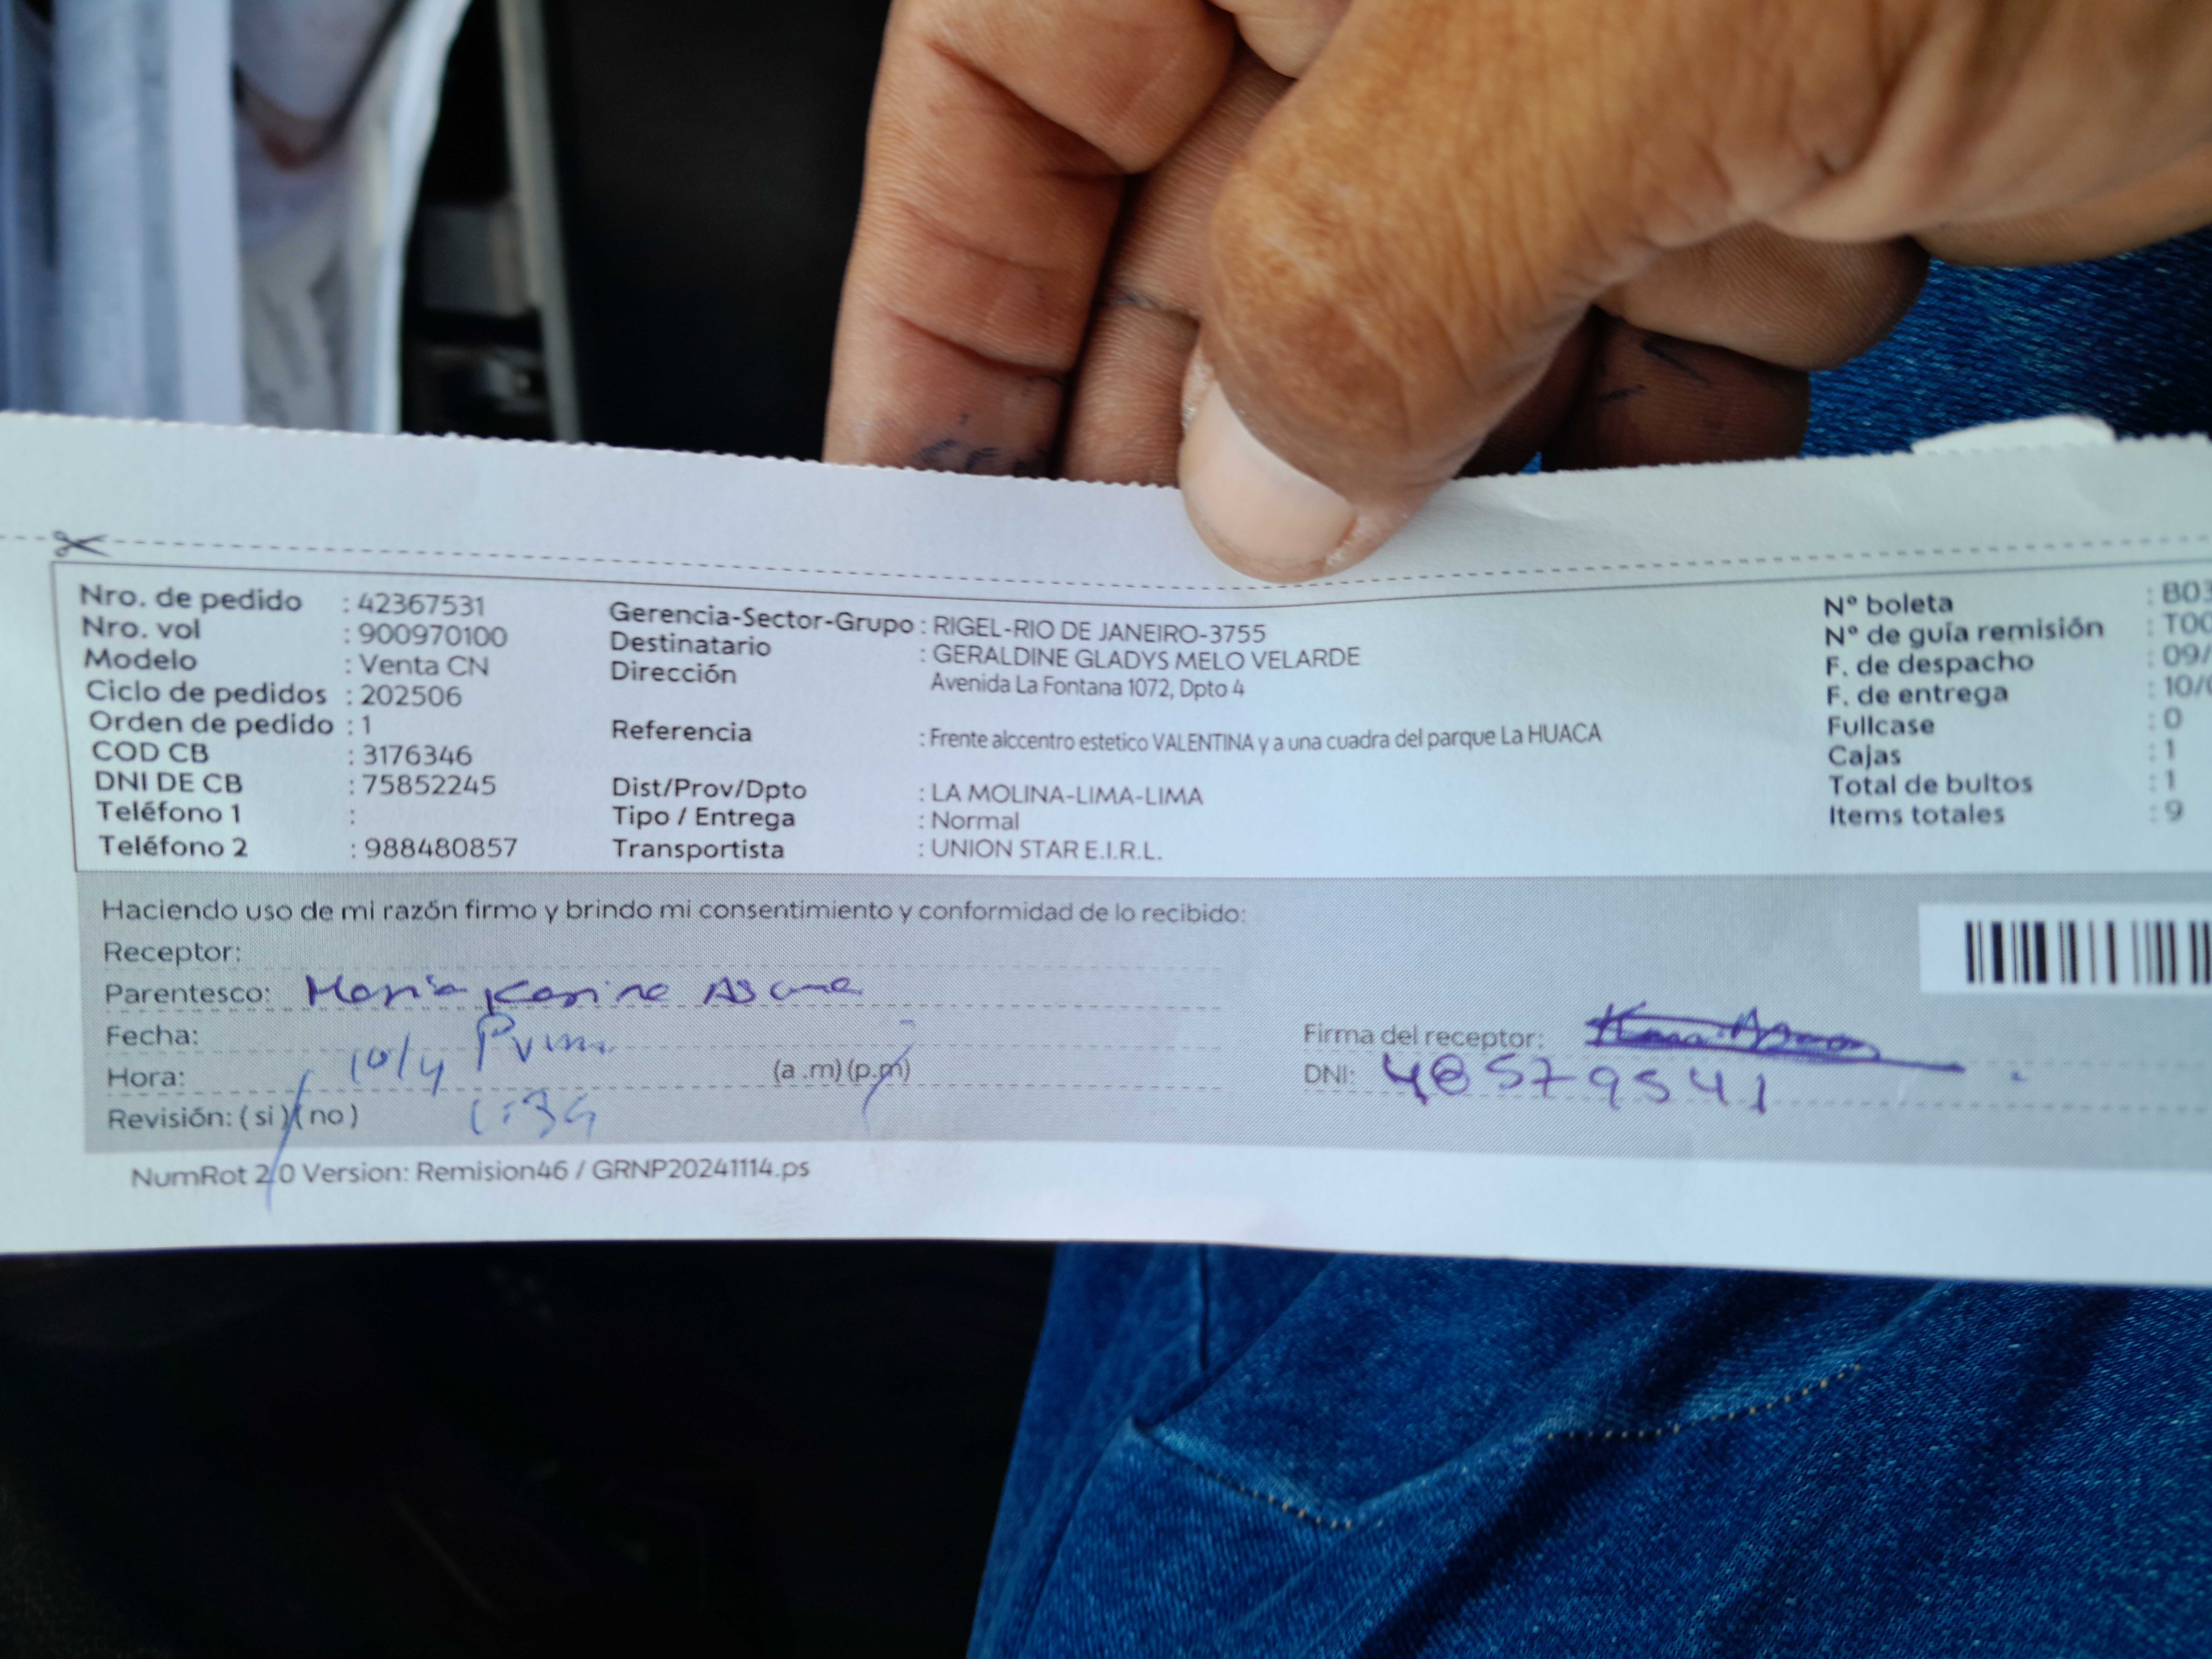 Nro. de pedido : 42367531
Nro. vol : 900970100
Modelo : Venta CN
Ciclo de pedidos : 202506
Orden de pedido : 1
COD CB : 3176346
DNI DE CB : 75852245
Teléfono 1 :
Teléfono 2 : 988480857
Gerencia-Sector-Grupo : RIGEL-RIO DE JANEIRO-3755
Destinatario : GERALDINE GLADYS MELO VELARDE
Dirección Avenida La Fontana 1072, Dpto 4
Referencia : Frente alccentro estetico VALENTINA y a una cuadra del parque La HUACA
Dist/Prov/Dpto : LA MOLINA-LIMA-LIMA
Tipo / Entrega : Normal
Transportista : UNION STAR E.I.R.L.
Nº boleta : B03
Nº de guía remisión : T00
F. de despacho : 09/
F. de entrega : 10/
Fullcase : 0
Cajas : 1
Total de bultos : 1
Items totales : 9
Haciendo uso de mi razón firmo y brindo mi consentimiento y conformidad de lo recibido:
Receptor:
Parentesco: María Karina
Fecha: 10/4
Hora: (a .m) (p.m)
Revisión: ( si ) ( no ) 1:34
Firma del receptor:
DNI: 48579541
NumRot 2.0 Version: Remision46 / GRNP20241114.ps